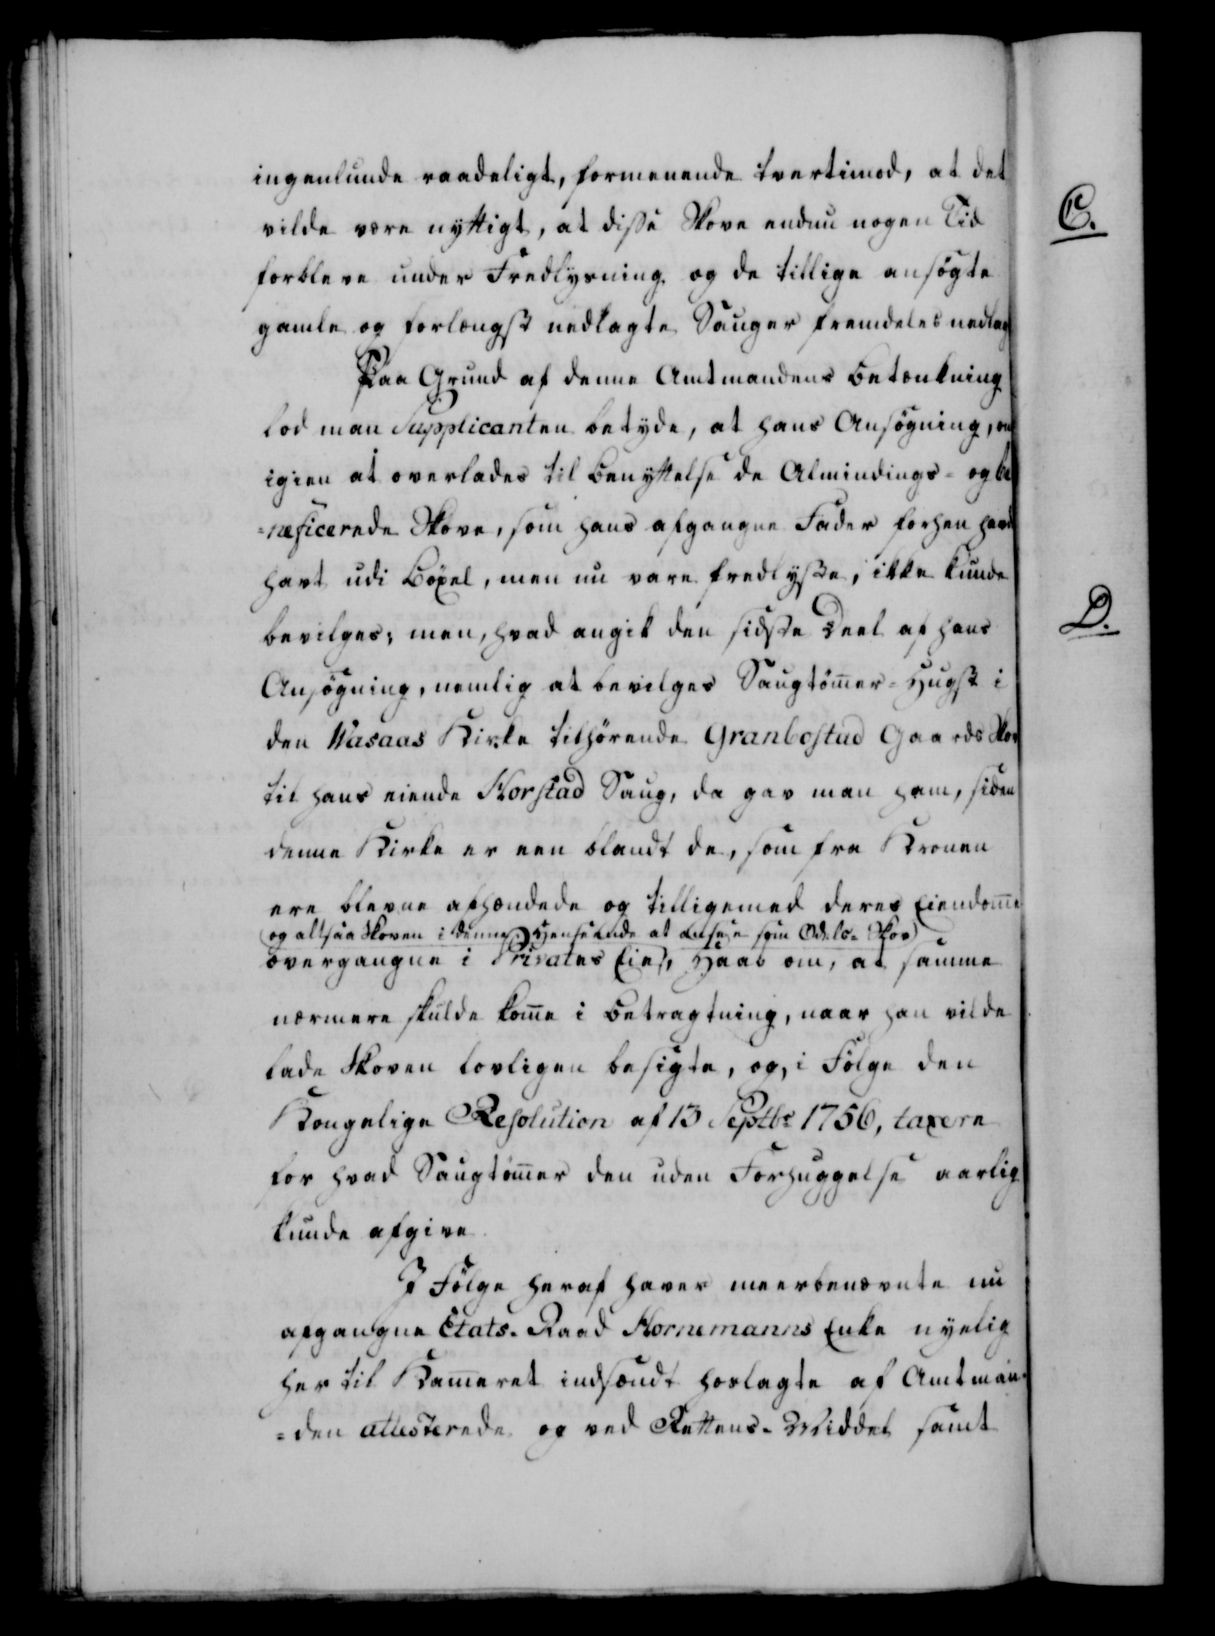 ingenlunde raadeligt, formenende tvertimod, at det
C.
vilde være nyttigt, at disse Skove endnu nogen Tid
forbleve under Fredlysning og de tillige ansøgte
gamle og forlængst nedlagte Sauger fremdeles nedlag
Paa Grund af denne Amtmandens Betænkning
lod man Supplicanten betyde, at hans Ansøgning, om
igien at overlades til Benyttelse de Almindings- og be
=neficerede Skove, som hans afgangne Fader forhen havde
havt udi Böxel, men nu vare fredlyste, ikke kunde
D.
bevilges; men, hvad angik den sidste Deel af hans
Ansøgning, nemlig at bevilges Saugtømer-Hugst i
den Wasaas Kirke tilhørende Granbostad Gaards Skov
til hans eiende Horstad Saug, da gav man ham, siden
denne Kirke er een blandt de, som fra Kronen
ere blevne afhændede og tilligemed deres Eiendomme
(og altsaa Skoven i denne Henseende at ansee som Odels-Skov)
overgangne i Privates Eie, Haab om, at samme
nærmere skulde kome i Betragtning, naar han vilde
lade Skoven lovligen besigte, og, i Følge den
Kongelige Resolution af 13 Septbr 1756, taxere
for hvad Saugtømer den uden Forhuggelse aarlig
kunde afgive.
I Følge heraf haver meerbenævnte nu
afgangne Etats-Raad Hornemanns Enke nyelig
her til Kameret indsendt hoslagte af Amtman-
=den attesterede og ved Rettens-Middel samt